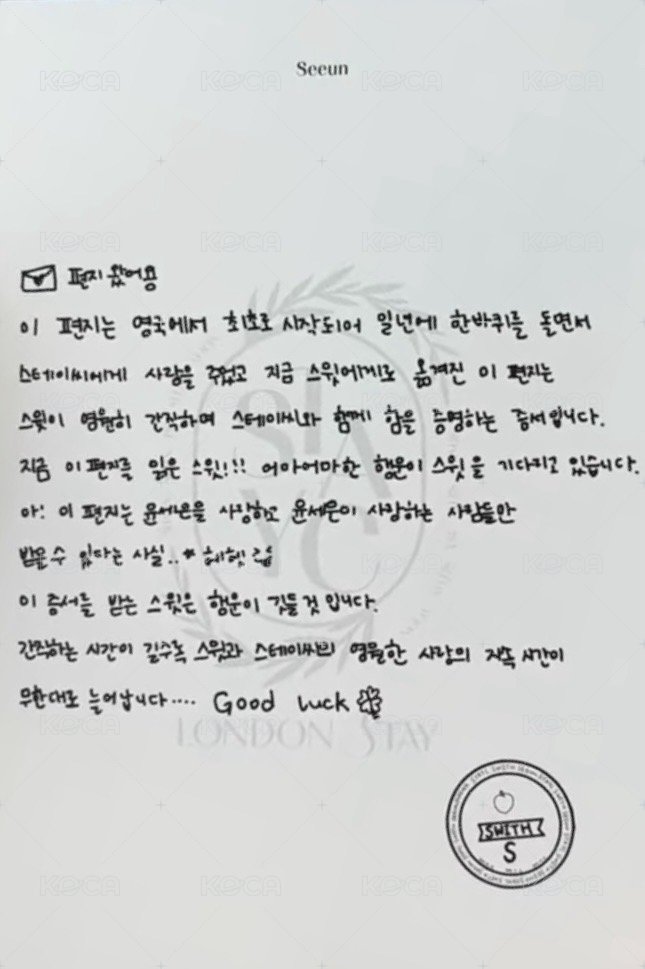 Seeun
편지 왔어용
이 편지는 영국에서 최초로 시작되어 일년에 한바퀴를 돌면서
스테이씨에게 사랑을 주었고 지금 스윗에게로 옮겨진 이 편지는
스윗이 영원히 간직하며 스테이씨와 함께 함을 증명하는 증서입니다.
지금 이 편지를 읽은 스윗!!! 어마어마한 행운이 스윗을 기다리고 있습니다.
아! 이 편지는 윤세은을 사랑하고 윤세은이 사랑하는 사람들만
받을 수 있다는 사실..* 헤헷
이 증서를 받는 스윗은 행운이 깃들 것 입니다.
간직하는 시간이 길수록 스윗과 스테이씨의 영원한 사랑의 지속 시간이
무한대로 늘어납니다.... Good luck
STAYC
LONDON STAY
SWITH
S
KOCA